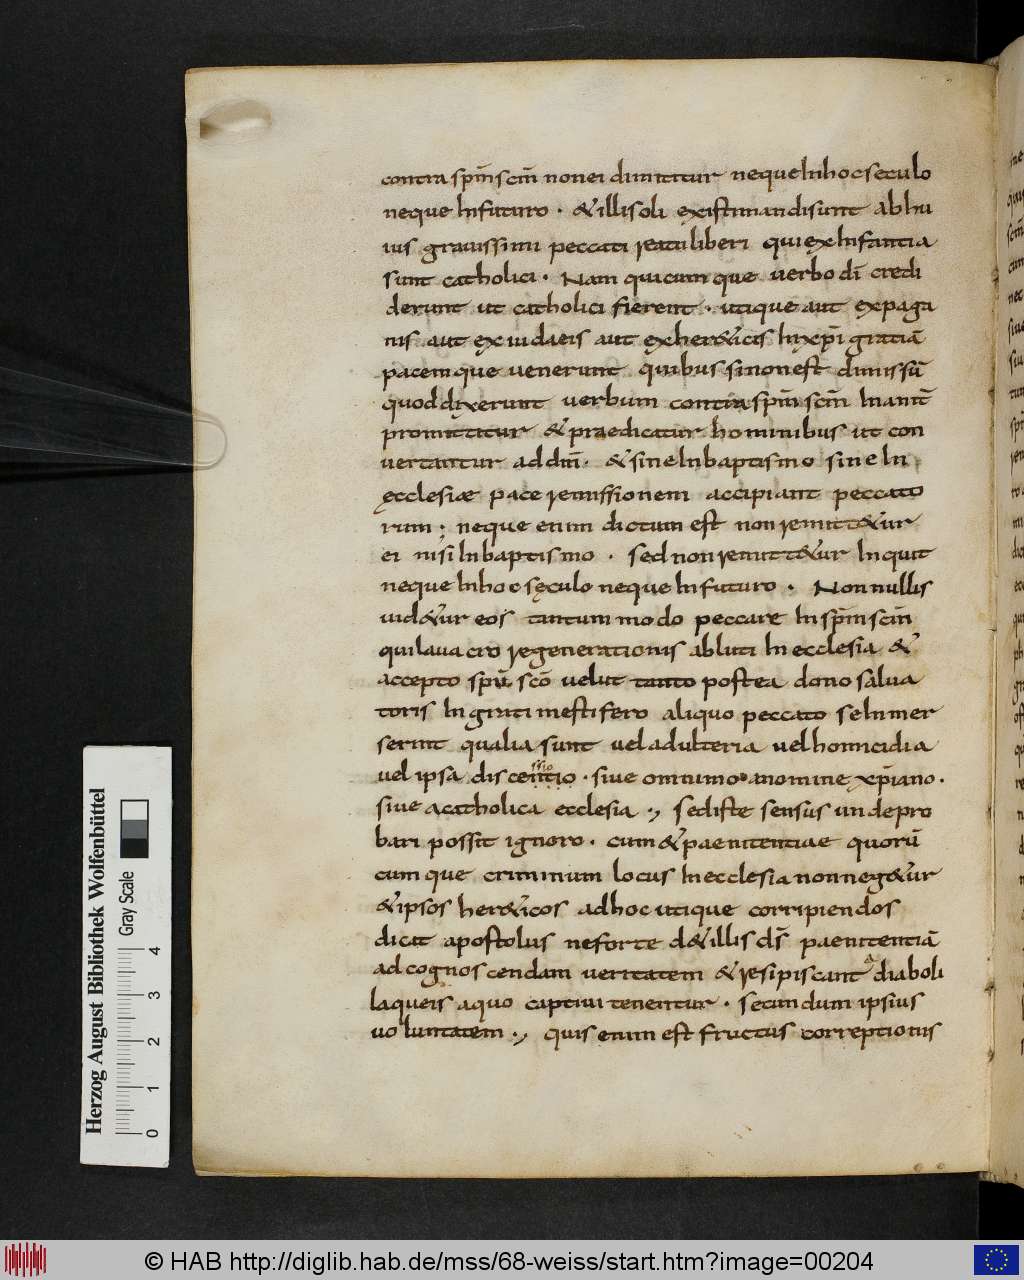 contra spm̄ scm̄ non ei dimittitur neque In hoc seculo
neque In futuro · & illi soli existimandi sunt ab hu
ius gravissimi peccati reatu liberi qui ex Infantia
sunt catholici · Nam quicumque verbo dī credi
derunt ut catholici fierent · utique aut ex paga
nis aut ex iudaeis aut ex her&icis In xpī gratiā
pacemque venerunt quibus si non est dimissū
quod dixerunt verbum contra spm̄ scm̄ Inanit̄
promittitur & praedicatur hominibus ut con
vertantur ad dm̄ · & sine In baptismo sine In
ęcclesiae pace remissionem accipiant peccato
rum ; neque enim dictum est non remitt&ur
ei nisi In baptismo · sed non remitt&ur Inquit
neque In hoc sęculo neque In futuro · Non nullis
uid&ur eos tantum modo peccare In spm̄ scm̄
qui lauacro regenerationis abluti In ecclesia &
accepto spū scō velut tanto postea dono salua
toris Ingrati mestifero aliquo peccato se Inmer
serint qualia sunt vel adulteria vel homicidia
vel ipsa discentio ssio · siue omnimo a nomine xp̄iano ·
siue a catholica ecclesia ., sed iste sensus unde pro
bari possit ignoro · cum & paenitentiae quorū
cumque criminum locus In ecclesia non neg&ur
& ipsos her&icos ad hoc utique corripiendos
dicit apostolus ne forte d& illis ds̄ paenitentiā
ad cognoscendam veritatem & resipiscant a diaboli
laqueis a quo captivi tenentur · secundum ipsius
voluntatem ., quis enim est fructus correptionis
Herzog August Bibliothek Wolfenbüttel
Gray Scale
0 1 2 3 4
© HAB http://diglib.hab.de/mss/68-weiss/start.htm?image=00204